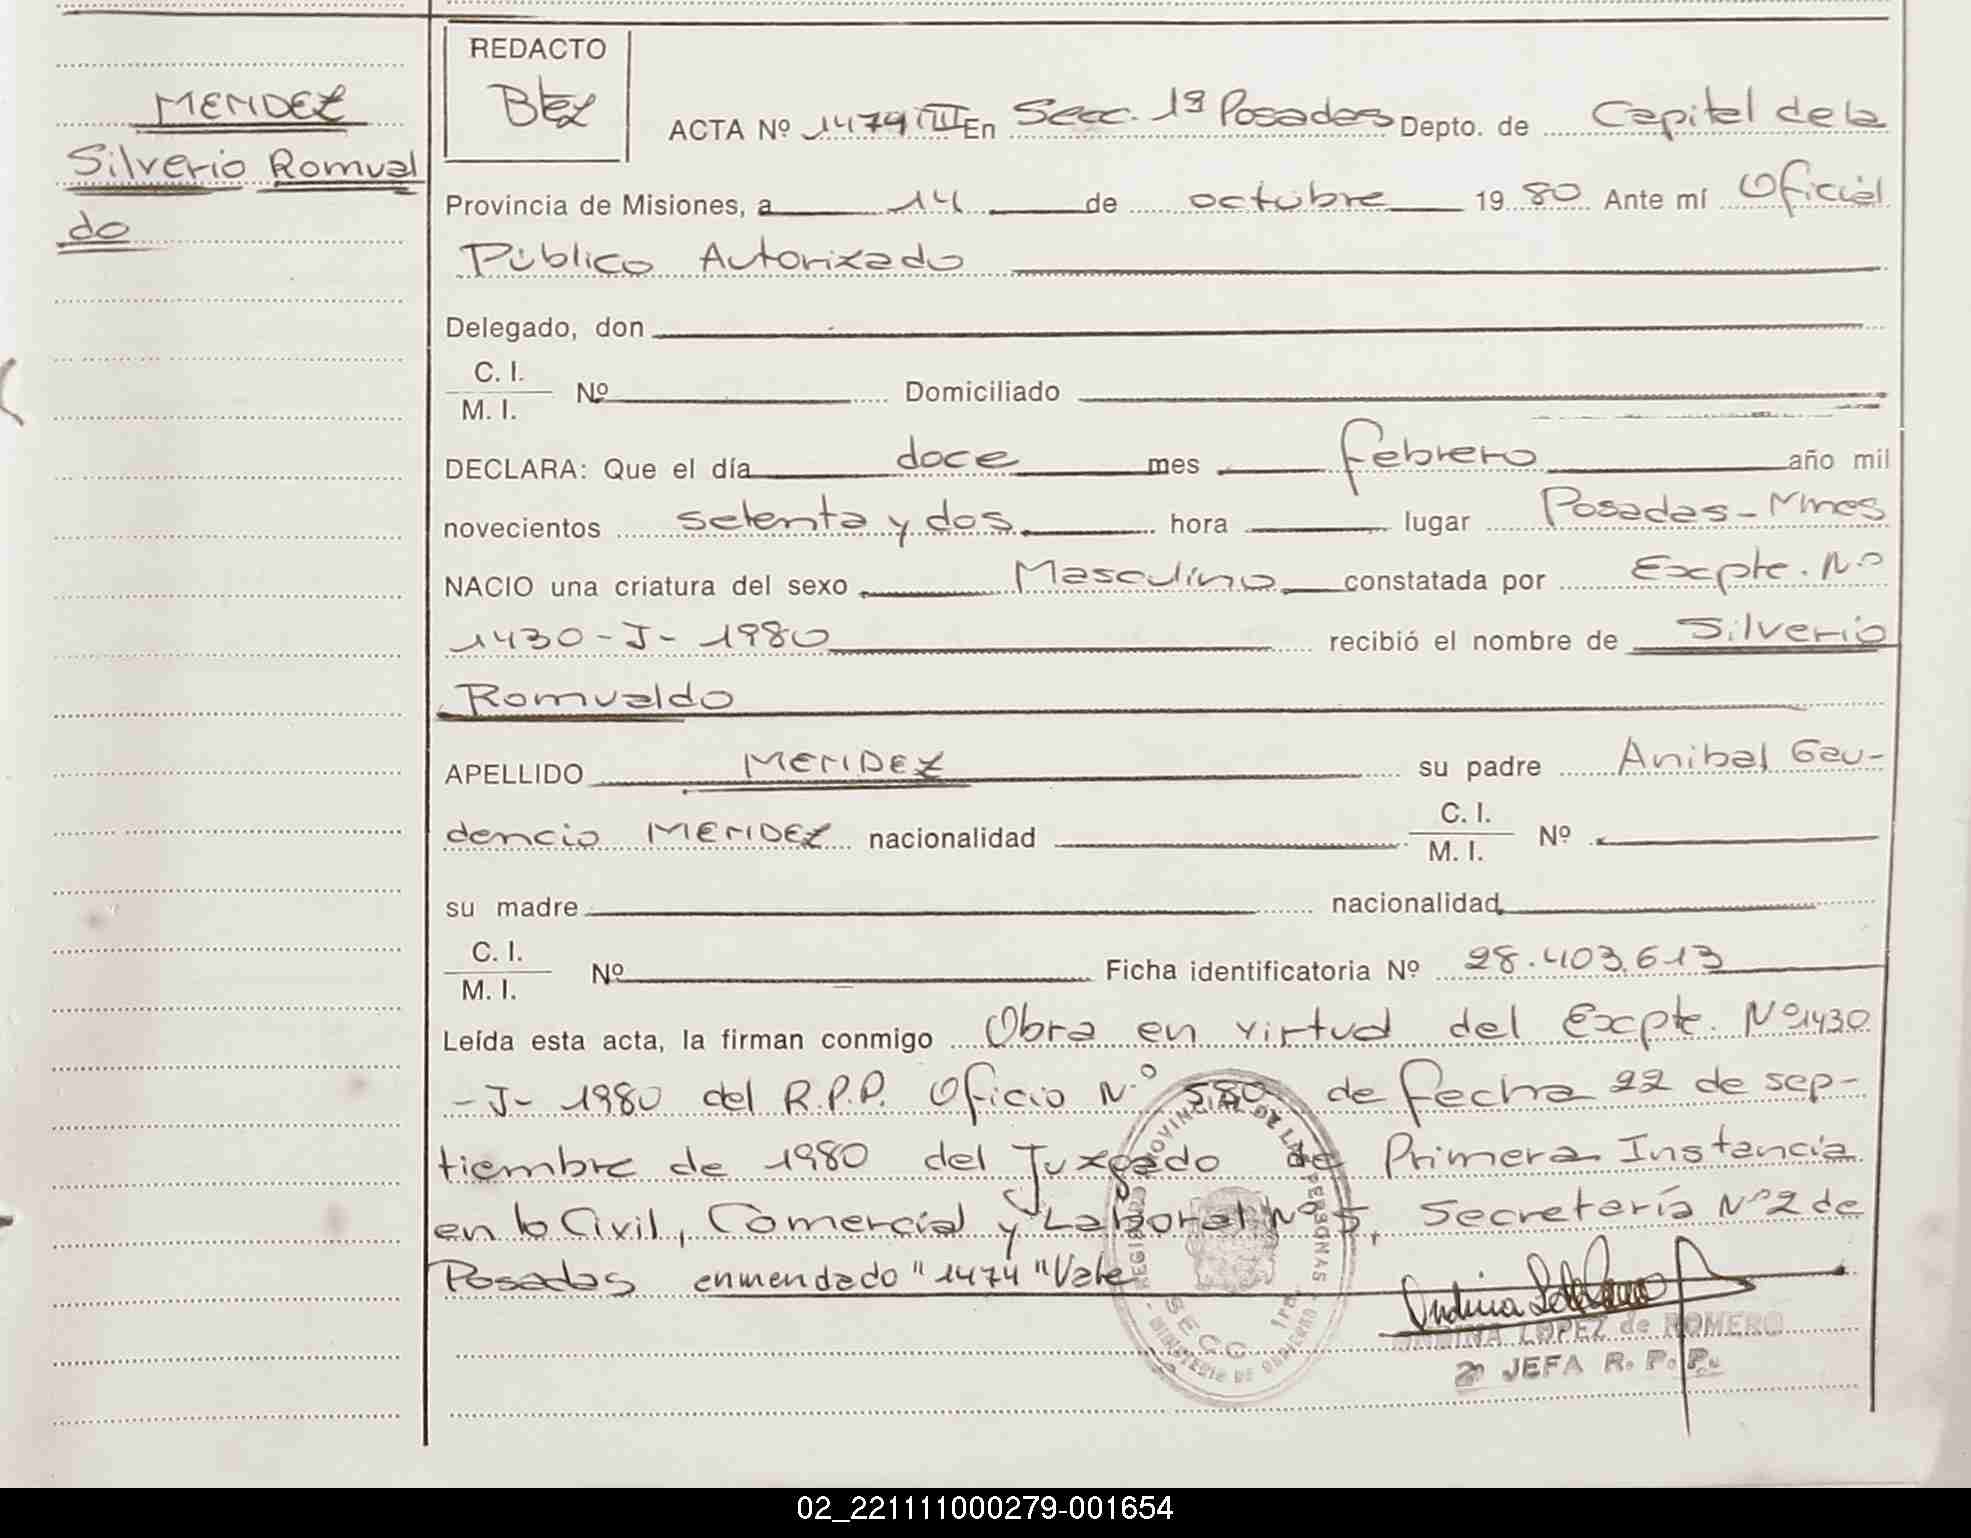 REDACTO
Btez
MENDEZ
Silverio Romual
do
ACTA Nº 1474 III En Secc. 1ª Posadas Depto. de Capital de la
Provincia de Misiones, a 14 de octubre 1980 Ante mí Oficial
Público Autorizado
Delegado, don
C. I.
M. I. Nº Domiciliado
DECLARA: Que el día doce mes febrero año mil
novecientos setenta y dos hora lugar Posadas - Mnes
NACIO una criatura del sexo Masculino constatada por Expte. Nº
1430-J-1980 recibió el nombre de Silverio
Romualdo
APELLIDO MENDEZ su padre Anibal Gau-
dencio MENDEZ nacionalidad C. I.
M. I. Nº
su madre nacionalidad
C. I.
M. I. Nº Ficha identificatoria Nº 28.403.613
Leída esta acta, la firman conmigo Obra en virtud del Expte. Nº 1430
-J- 1980 del R.P.P. Oficio Nº 580 de fecha 22 de sep-
tiembre de 1980 del Juzgado de Primera Instancia
en lo Civil, Comercial y Laboral Nº 5, Secretaría Nº 2 de
Posadas enmendado "1474" Vale
REGISTRO PROVINCIAL DE LAS PERSONAS
SECC. 1ra.
MINISTERIO DE GOBIERNO
LOPEZ de ROMERO
JEFA R. P. P.
02_221111000279-001654